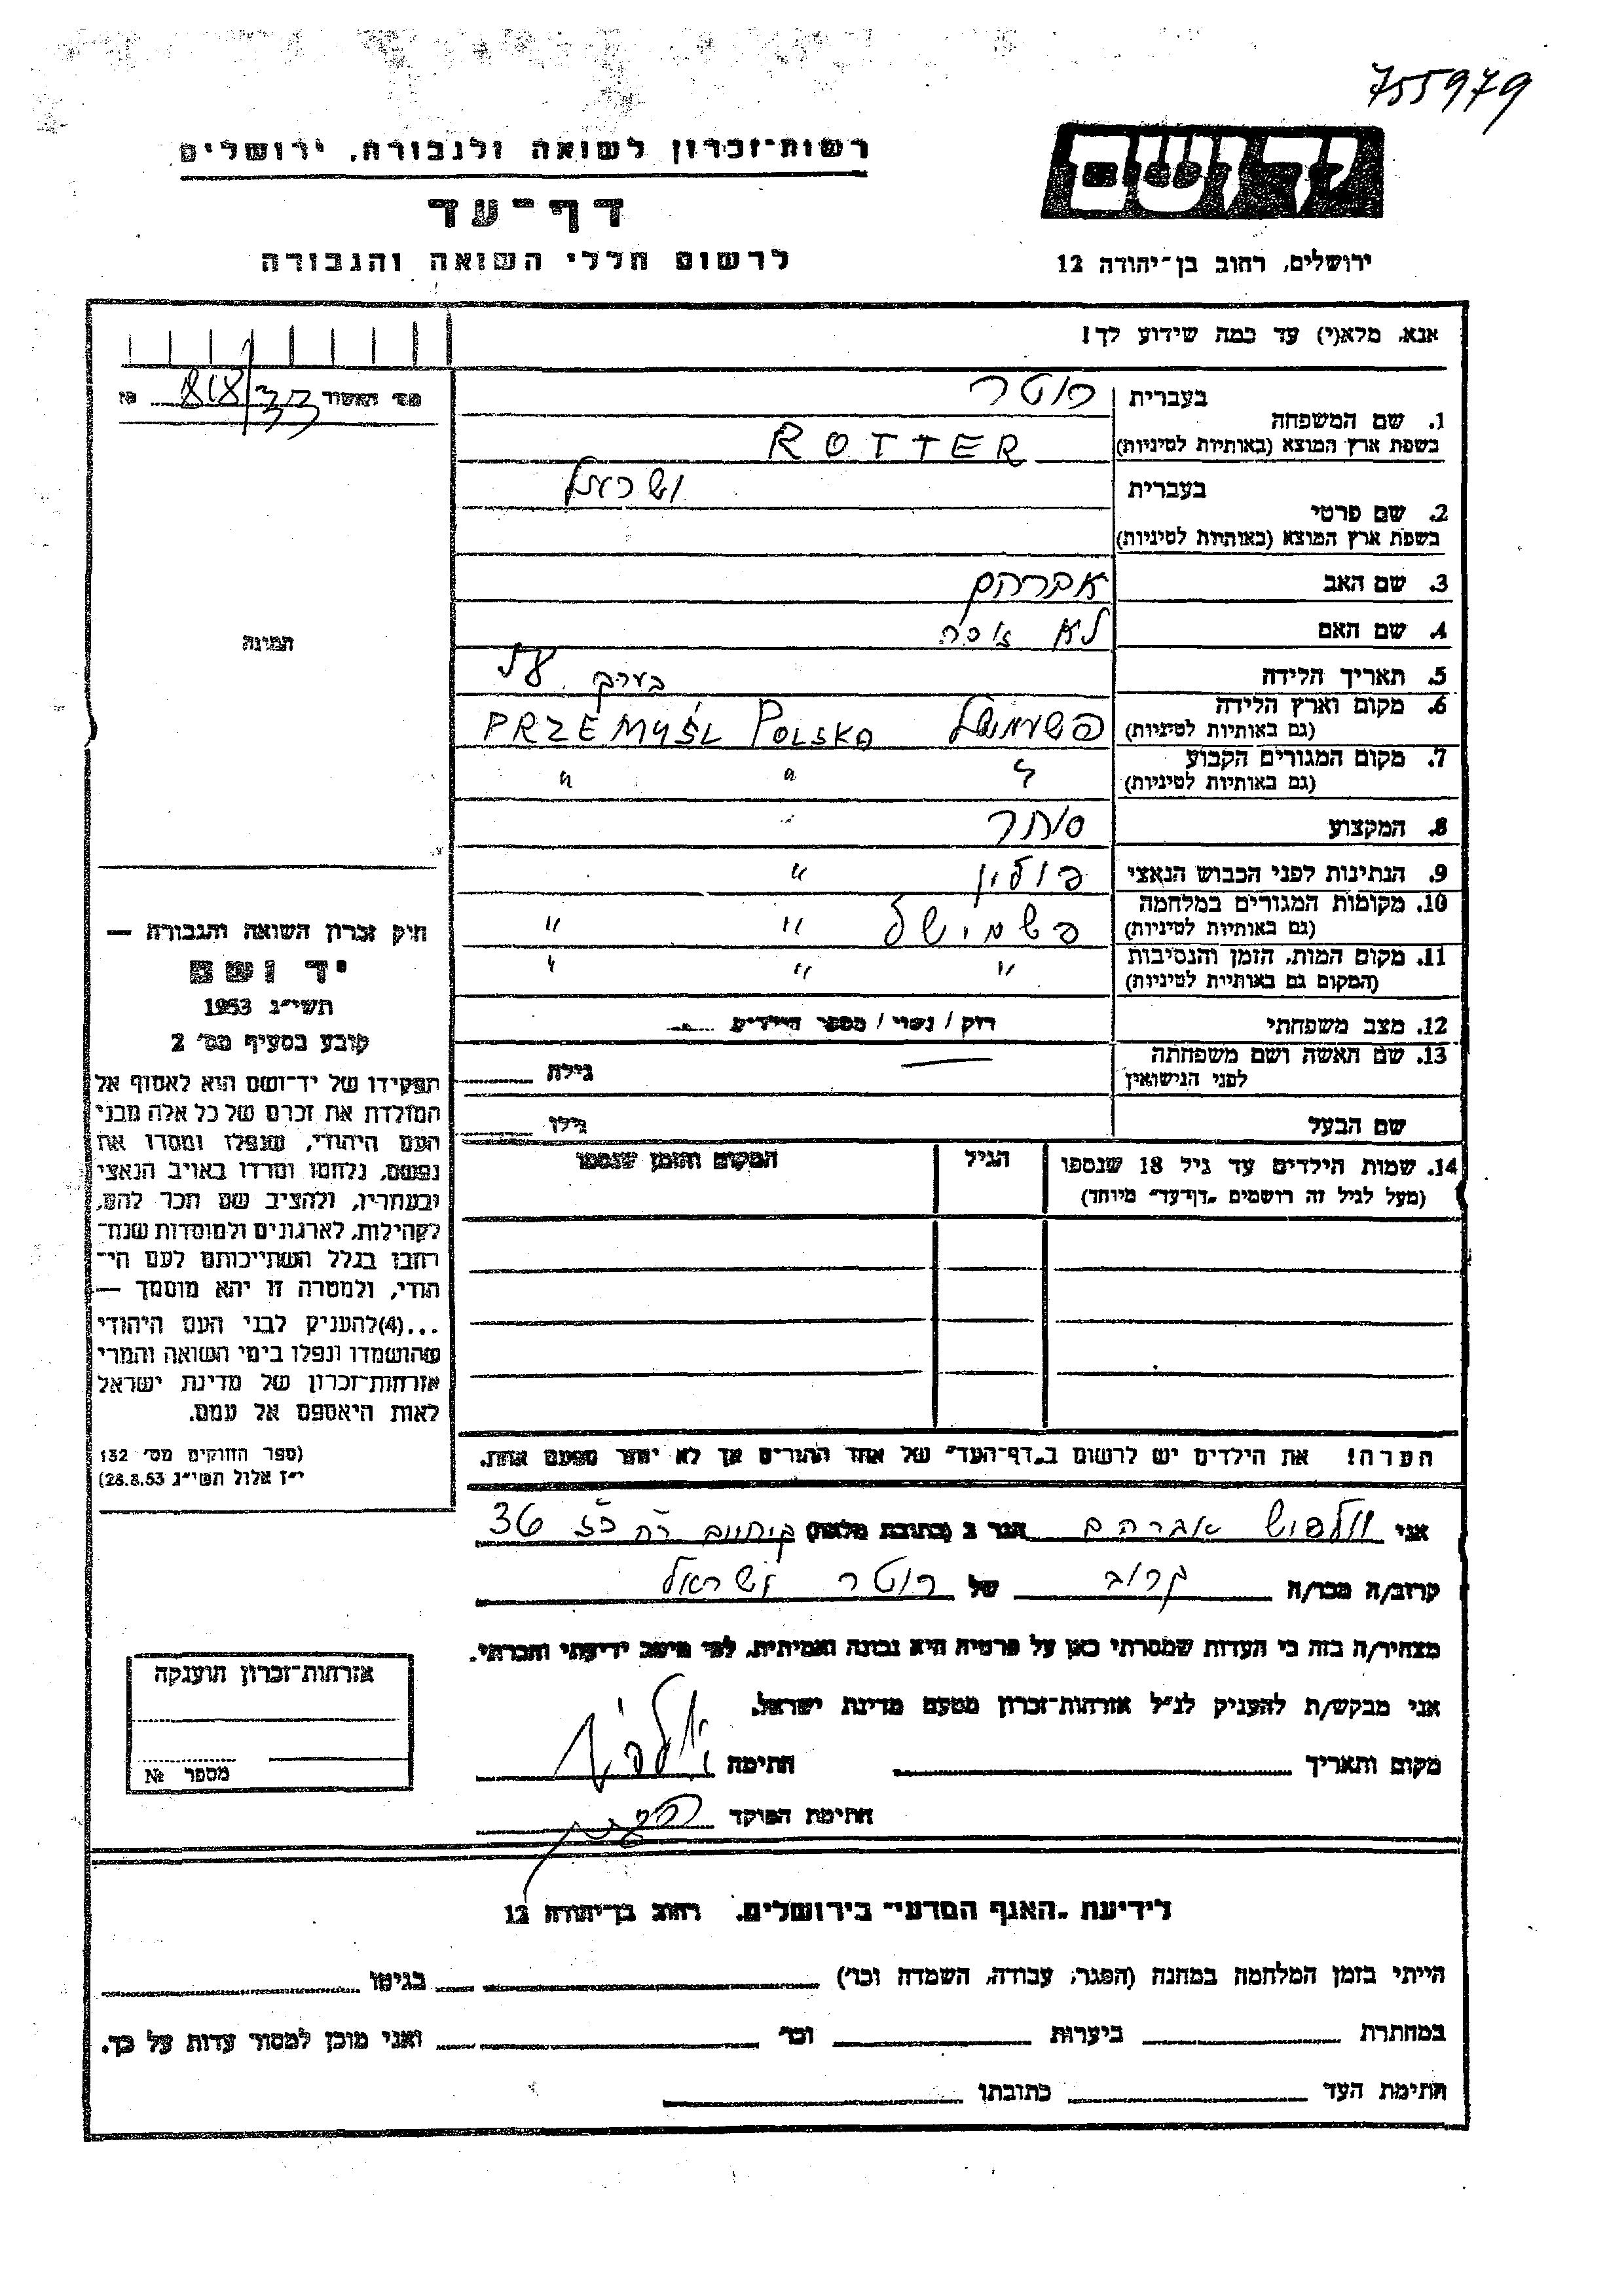 755979
רשות־זכרון לשואה ולגבורה. ירושלים
דף־עד
לרשום חללי השואה והגבורה
יד ושם
ירושלים, רחוב בן־יהודה 12
אנא, מלא(י) עד כמה שידוע לך!
1. שם המשפחה
בעברית רוטר
בשפת ארץ המוצא (באותיות לטיניות) ROTTER
2. שם פרטי
בעברית ישראל
בשפת ארץ המוצא (באותיות לטיניות)
3. שם האב אברהם
4. שם האם לא זוכר
5. תאריך הלידה בערך
6. מקום וארץ הלידה
(גם באותיות לטיניות) PRZEMYŚL POLSKA
7. מקום המגורים הקבוע " " "
(גם באותיות לטיניות)
8. המקצוע סוחר
9. הנתינות לפני הכבוש הנאצי פולין "
10. מקומות המגורים במלחמה פשמישל " "
(גם באותיות לטיניות)
11. מקום המות, הזמן והנסיבות " " "
(המקום גם באותיות לטיניות)
12. מצב משפחתי רוק / נשוי / מספר הילדים
13. שם האשה ושם משפחתה
לפני הנישואין גילה
שם הבעל גילו
14. שמות הילדים עד גיל 18 שנספו
(מעל לגיל זה רושמים „דף־עד" מיוחד)
הגיל
המקום והזמן שנספו
הערה! את הילדים יש לרשום ב„דף־העד" של אחד ההורים אך לא יותר מפעם אחת.
תמונה
חוק זכרון השואה והגבורה —
יד ושם
תשי״ג 1953
קובע בסעיף מס׳ 2
תפקידו של יד־ושם הוא לאסוף אל
המולדת את זכרם של כל אלה מבני
העם היהודי, שנפלו ומסרו את
נפשם, נלחמו ומרדו באויב הנאצי
ובעוזריו, ולהציב שם וזכר להם,
לקהילות, לארגונים ולמוסדות שנח־
רבו בגלל השתייכותם לעם הי־
הודי, ולמטרה זו יהא מוסמך —
...(4)להעניק לבני העם היהודי
שהושמדו ונפלו בימי השואה והמרי
אזרחות־זכרון של מדינת ישראל
לאות היאספם אל עמם.
(ספר החוקים מס׳ 132
י״ז אלול תשי״ג 28.8.53)
אני אברהם הגר ב (כתובת מלאה) 36
קרוב/ה מכר/ה קרוב של רוטר ישראל
מצהיר/ה בזה כי העדות שמסרתי כאן על פרטיה היא נכונה ואמיתית, לפי מיטב ידיעתי והכרתי.
אני מבקש/ת להעניק לנ״ל אזרחות־זכרון מטעם מדינת ישראל.
מקום ותאריך חתימה
חתימת הפוקד
אזרחות־זכרון הוענקה
מספר №
לידיעת „האגף המדעי" בירושלים. רחוב בן־יהודה 12
הייתי בזמן המלחמה במחנה (הסגר, עבודה, השמדה וכו׳) בגיטו
במחתרת ביערות וכו׳ ואני מוכן למסור עדות על כך.
חתימת העד כתובתו